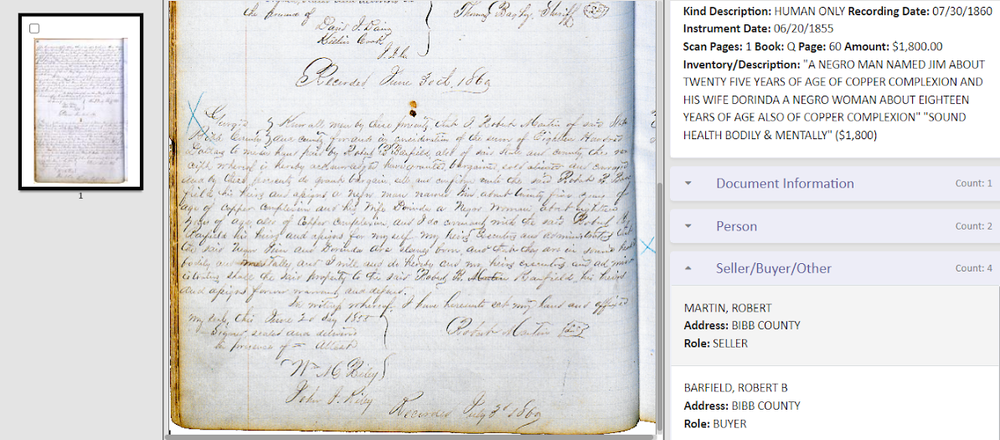 the presence of
Thomas Bagby Sheriff
David F.
J. I. C.
Recorded June 30th, 1860
Georgia } Know all men by these presents that I Robert Martin of said State
Bibb County } and County for and in consideration of the sum of Eighteen Hundred
Dollars to me in hand paid by Robert B Barfield also of said State and County the re-
ceipt whereof is hereby acknowledged have granted bargained and
and by these presents do grant bargain sell and unto the said Robert B Bar
field his heirs and assigns a Negro man named Jim about twenty five years of
age of Copper Complexion and his wife Dorinda a Negro Woman about eighteen
years of age also of Copper Complexion, and I do covenant with the said Robert B
Barfield his heirs and assigns for myself my heirs Executors and administrators that
the said Negroes Jim and Dorinda are slaves and that they are in sound health
bodily and mentally and I will and do hereby and my heirs executors and
the said property to the said Robert B. Barfield, his heirs
and assigns forever warrant and defend.
In witness whereof, I have hereunto set my hand and affixed
my seal, this June 20 day 1855
Signed sealed and delivered
in presence of Attest
Robert Martin
Wm C Riley
John J. Riley
Recorded July 30 1860
1
Kind Description: HUMAN ONLY Recording Date: 07/30/1860
Instrument Date: 06/20/1855
Scan Pages: 1 Book: Q Page: 60 Amount: $1,800.00
Inventory/Description: "A NEGRO MAN NAMED JIM ABOUT
TWENTY FIVE YEARS OF AGE OF COPPER COMPLEXION AND
HIS WIFE DORINDA A NEGRO WOMAN ABOUT EIGHTEEN
YEARS OF AGE ALSO OF COPPER COMPLEXION" "SOUND
HEALTH BODILY & MENTALLY" ($1,800)
Document Information Count: 1
Person Count: 2
Seller/Buyer/Other Count: 4
MARTIN, ROBERT
Address: BIBB COUNTY
Role: SELLER
BARFIELD, ROBERT B
Address: BIBB COUNTY
Role: BUYER